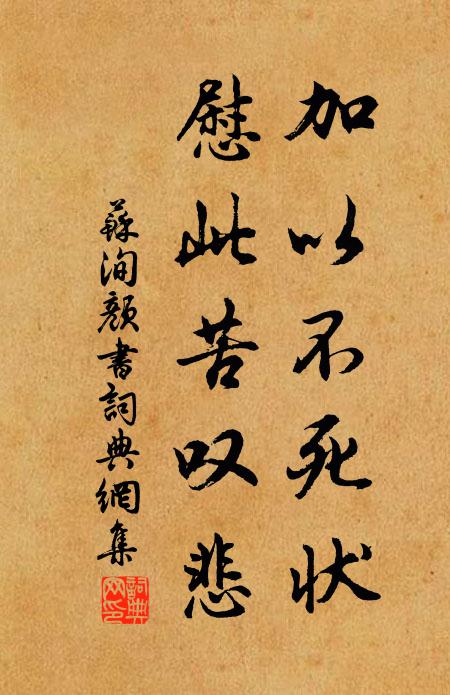 加以不死状
慰此苦叹悲
蘇洵顏書詞典網集
詞典网印